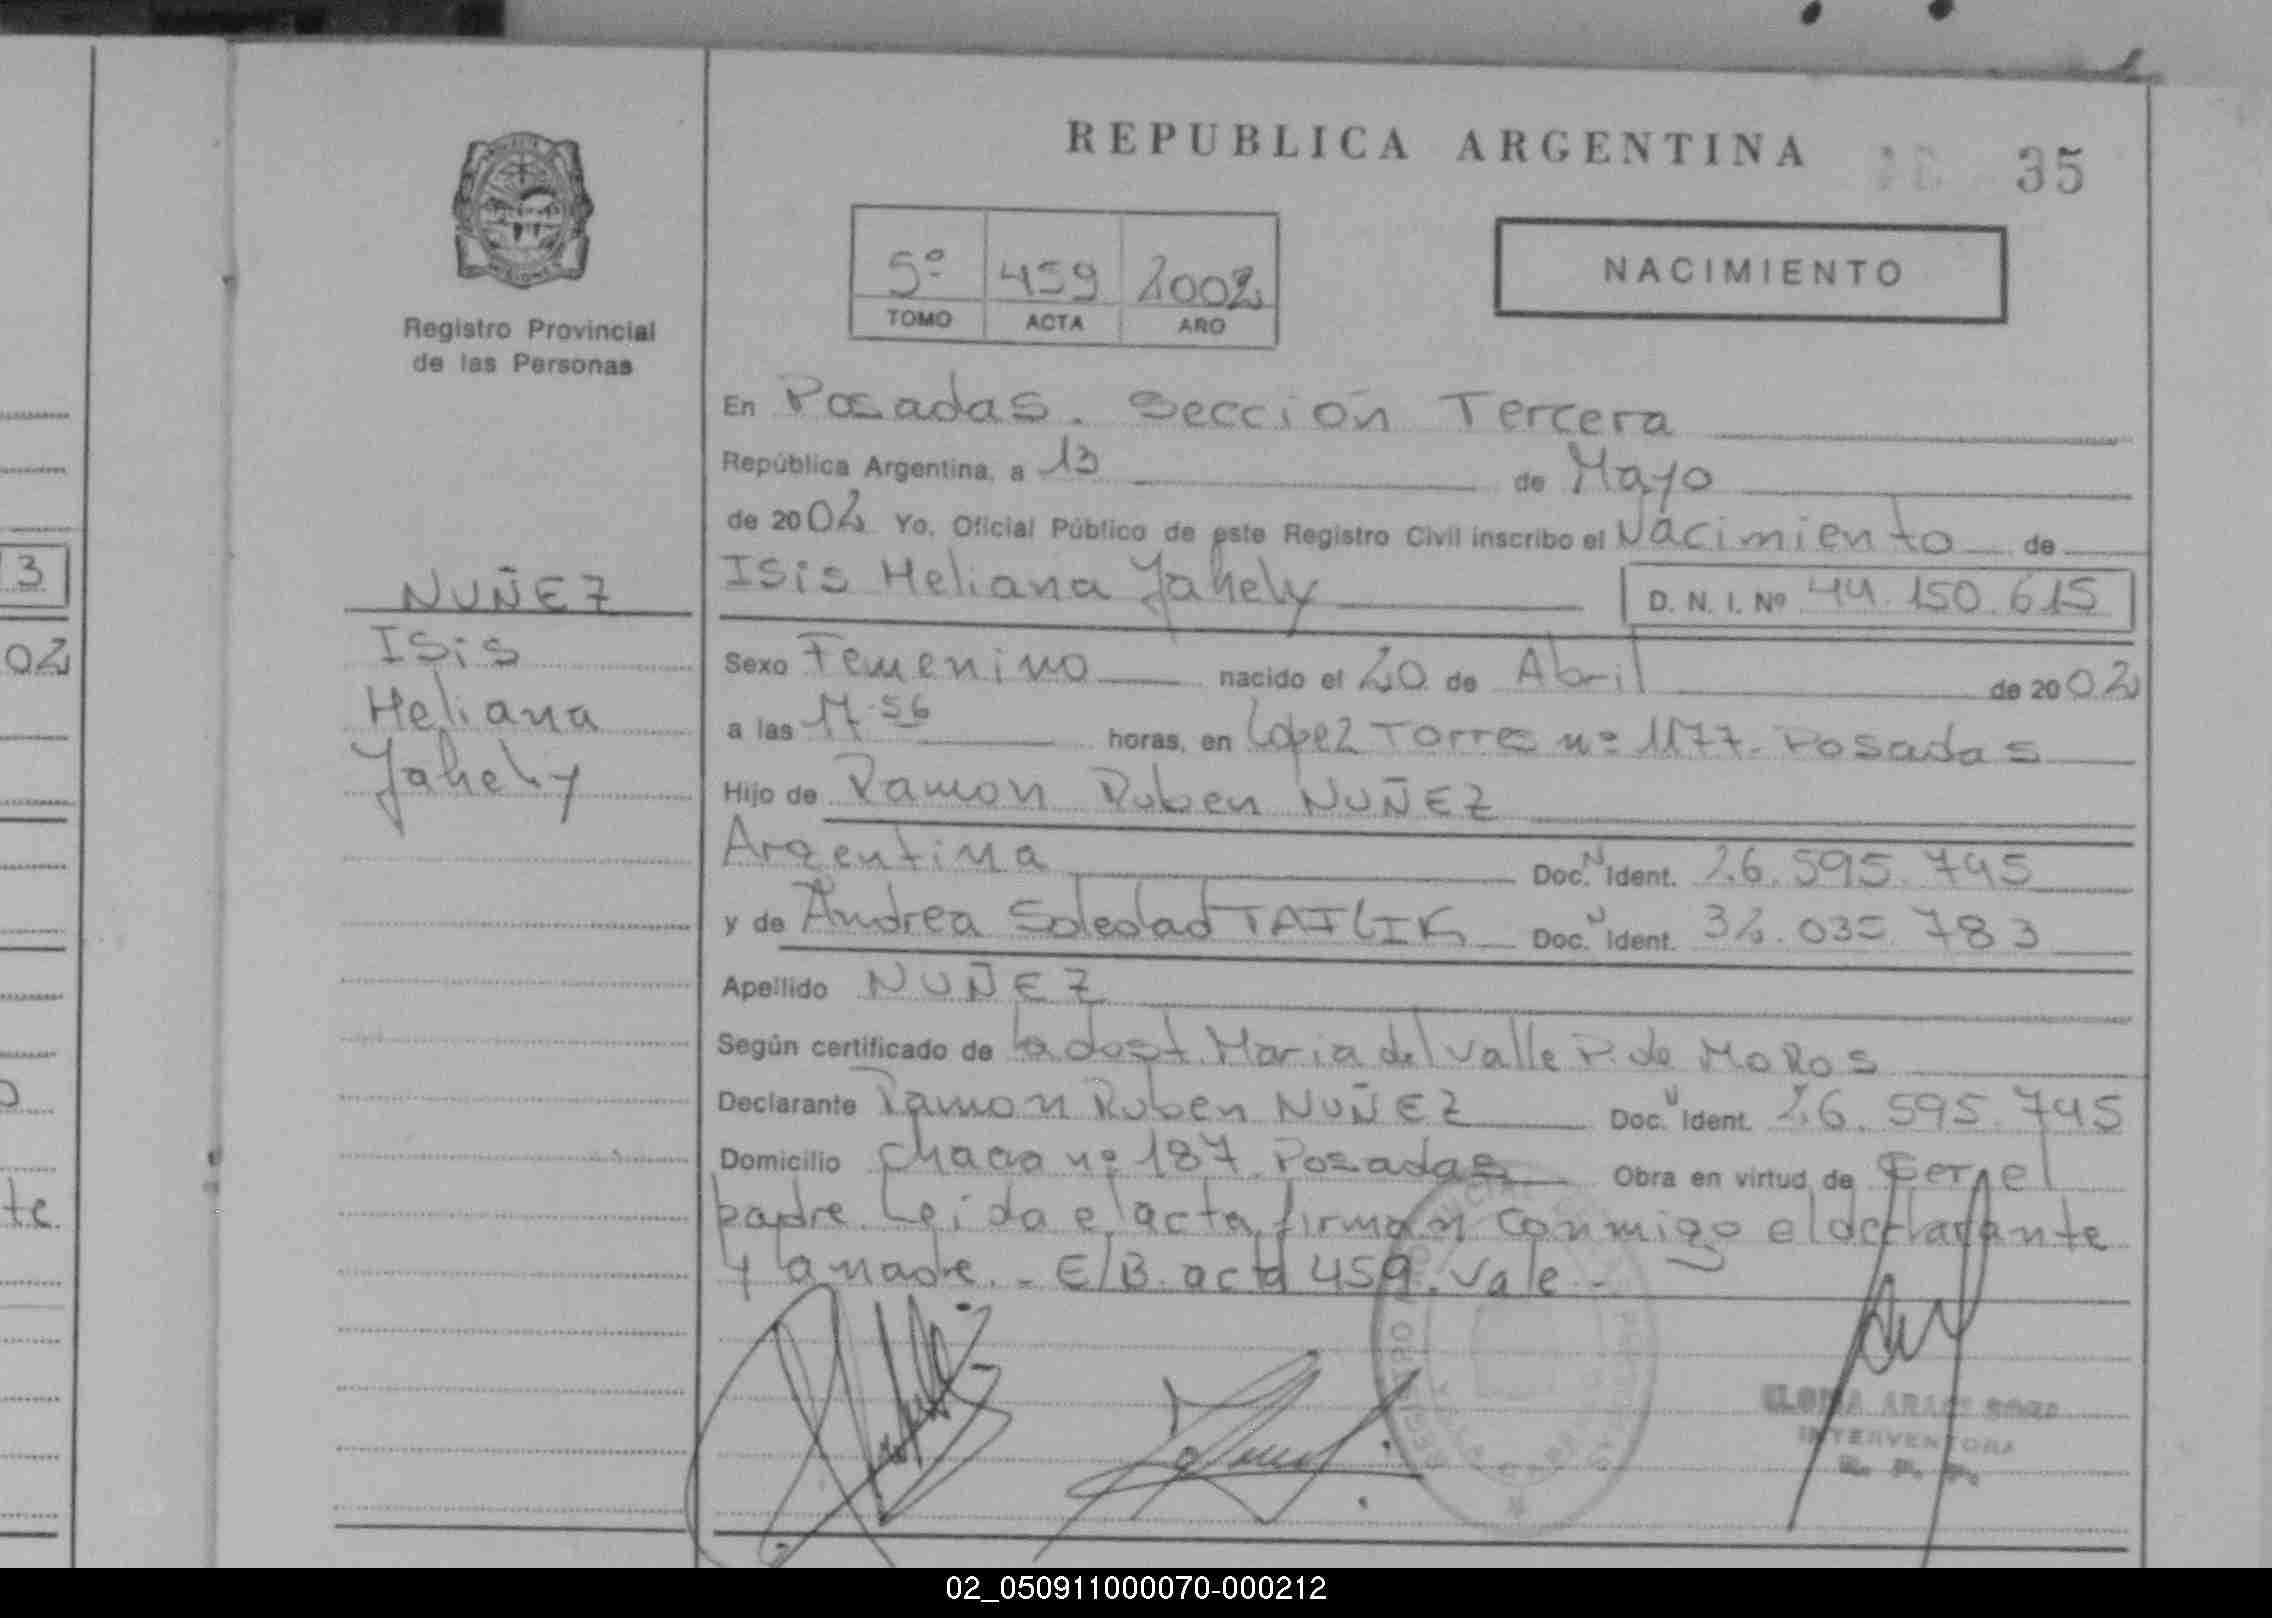 REPUBLICA ARGENTINA
35
Registro Provincial
de las Personas
5º 459 2002
TOMO ACTA AÑO
NACIMIENTO
En Posadas. Sección Tercera
República Argentina, a 13 de Mayo
de 2002 Yo, Oficial Público de este Registro Civil inscribo el Nacimiento de
Isis Heliana Yahely D. N. I. Nº 44.150.615
NUÑEZ
Isis
Heliana
Yahely
Sexo Femenino nacido el 20 de Abril de 2002
a las 17.56 horas, en Lopez Torres nº 1177. Posadas
Hijo de Ramon Ruben NUÑEZ
Argentina Doc. N Ident. 26.595.745
y de Andrea Soledad TAILIK Doc. N Ident. 32.035.783
Apellido NUÑEZ
Según certificado de la dost. Maria del Valle P. de MoRos
Declarante Ramon Ruben NUÑEZ Doc. N Ident. 26.595.745
Domicilio chaco nº 187 Posadas Obra en virtud de Ser el
padre. Leida el acta, firman conmigo el declarante
y la madre. - E/B. acta 459. Vale -
INTERVENTORA
3
02
te.
02_050911000070-000212